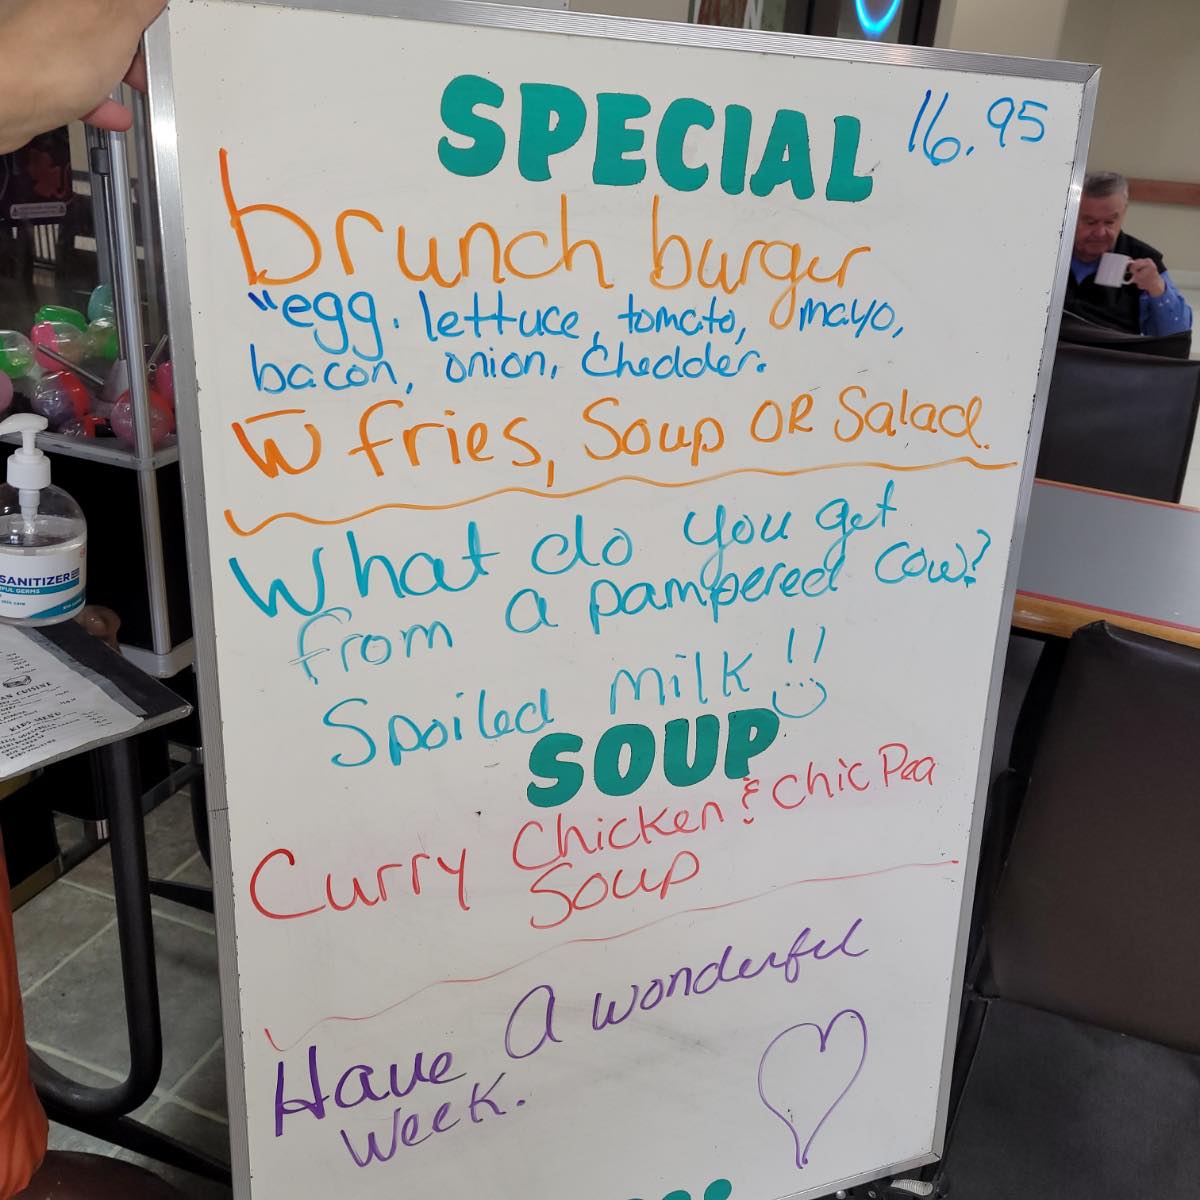 SPECIAL 16.95
brunch burger
"egg. lettuce, tomato, mayo,
bacon, onion, Chedder.
w̅ fries, Soup OR Salad.
What do you get
from a pampered cow?
Spoiled milk !!
SOUP
Curry Chicken & Chic Pea
Soup
Have A wonderful
Week.
SANITIZER
KIDS MENU